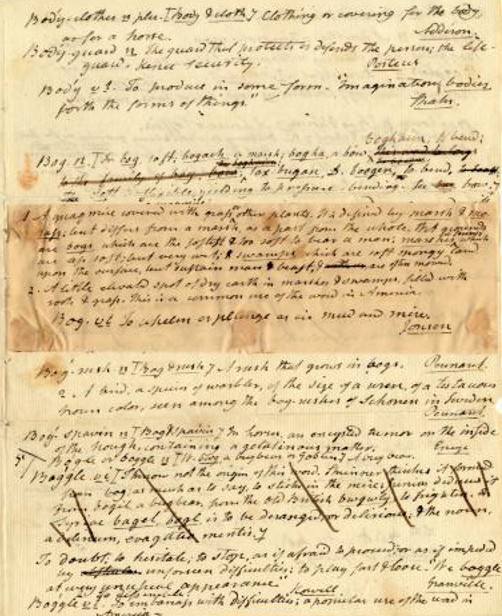 Body-clothes n plu. [body & cloth.] Clothing or covering for the body,
as for a horse. Addison.
Body-guard n The guard that protects or defends the person; the life-
guard. Hence security. Porteus
Body v.t. To produce in some form. "Imagination bodies
forth the forms of things." Shaks.
to bend;
Bog n. [Ir bog, soft; bogach, a marsh; bogha, a bow,
Sax bugan, D. boogen, to bend,
soft yielding to pressure bending. See bow,
1. A quagmire covered with grass or other plants. It is defined by marsh & mo-
rass, but differs from a marsh, as a part from the whole. Wet grounds
are bogs, which are the softest & too soft to bear a man; marshes which
are less soft, but very wet; & swamps which are soft spongy land
upon the surface, but sustain man & beast, & are often mowed.
2. A little elevated spot of dry earth in marshes & swamps, filled with
roots & grass. This is a common use of the word in America.
Bog. v.t. To whelm or plunge as in mud and mire.
Jonson
Bog-rush n [bog & rush] A rush that grows in bogs. Pennant.
2. A bird, a species of warbler, of the size of a wren, of a testaceous
brown color, seen among the bog-rushes of Schonen in Sweden
Pennant.
Bog-spavin n. [bog & spavin] In horses, an encysted tumor on the inside
of the hough, containing a gelatinous matter. Encyc
Boggle or boggle n [W. bog, a bugbear or goblin] A bugbear.
Boggle v.i. [I know not the origin of this word. Skinner thinks it formed
from bog, as much as to say, to stick in the mire; Junius deduces it
from bogil a bugbear, from the old British bugwly to frighten. In
Syriac bagel, bogl is to be deranged, or delirious; & the noun,
a delirium, evagatio mentis.]
To doubt; to hesitate; to stop, as if afraid to proceed, or as if impeded
by unforseen difficulties; to play fast & loose. "We boggle
at every unusual appearance." Granville
Howell
Boggle v.t. To embarrass with difficulties; a popular use of the word in
America